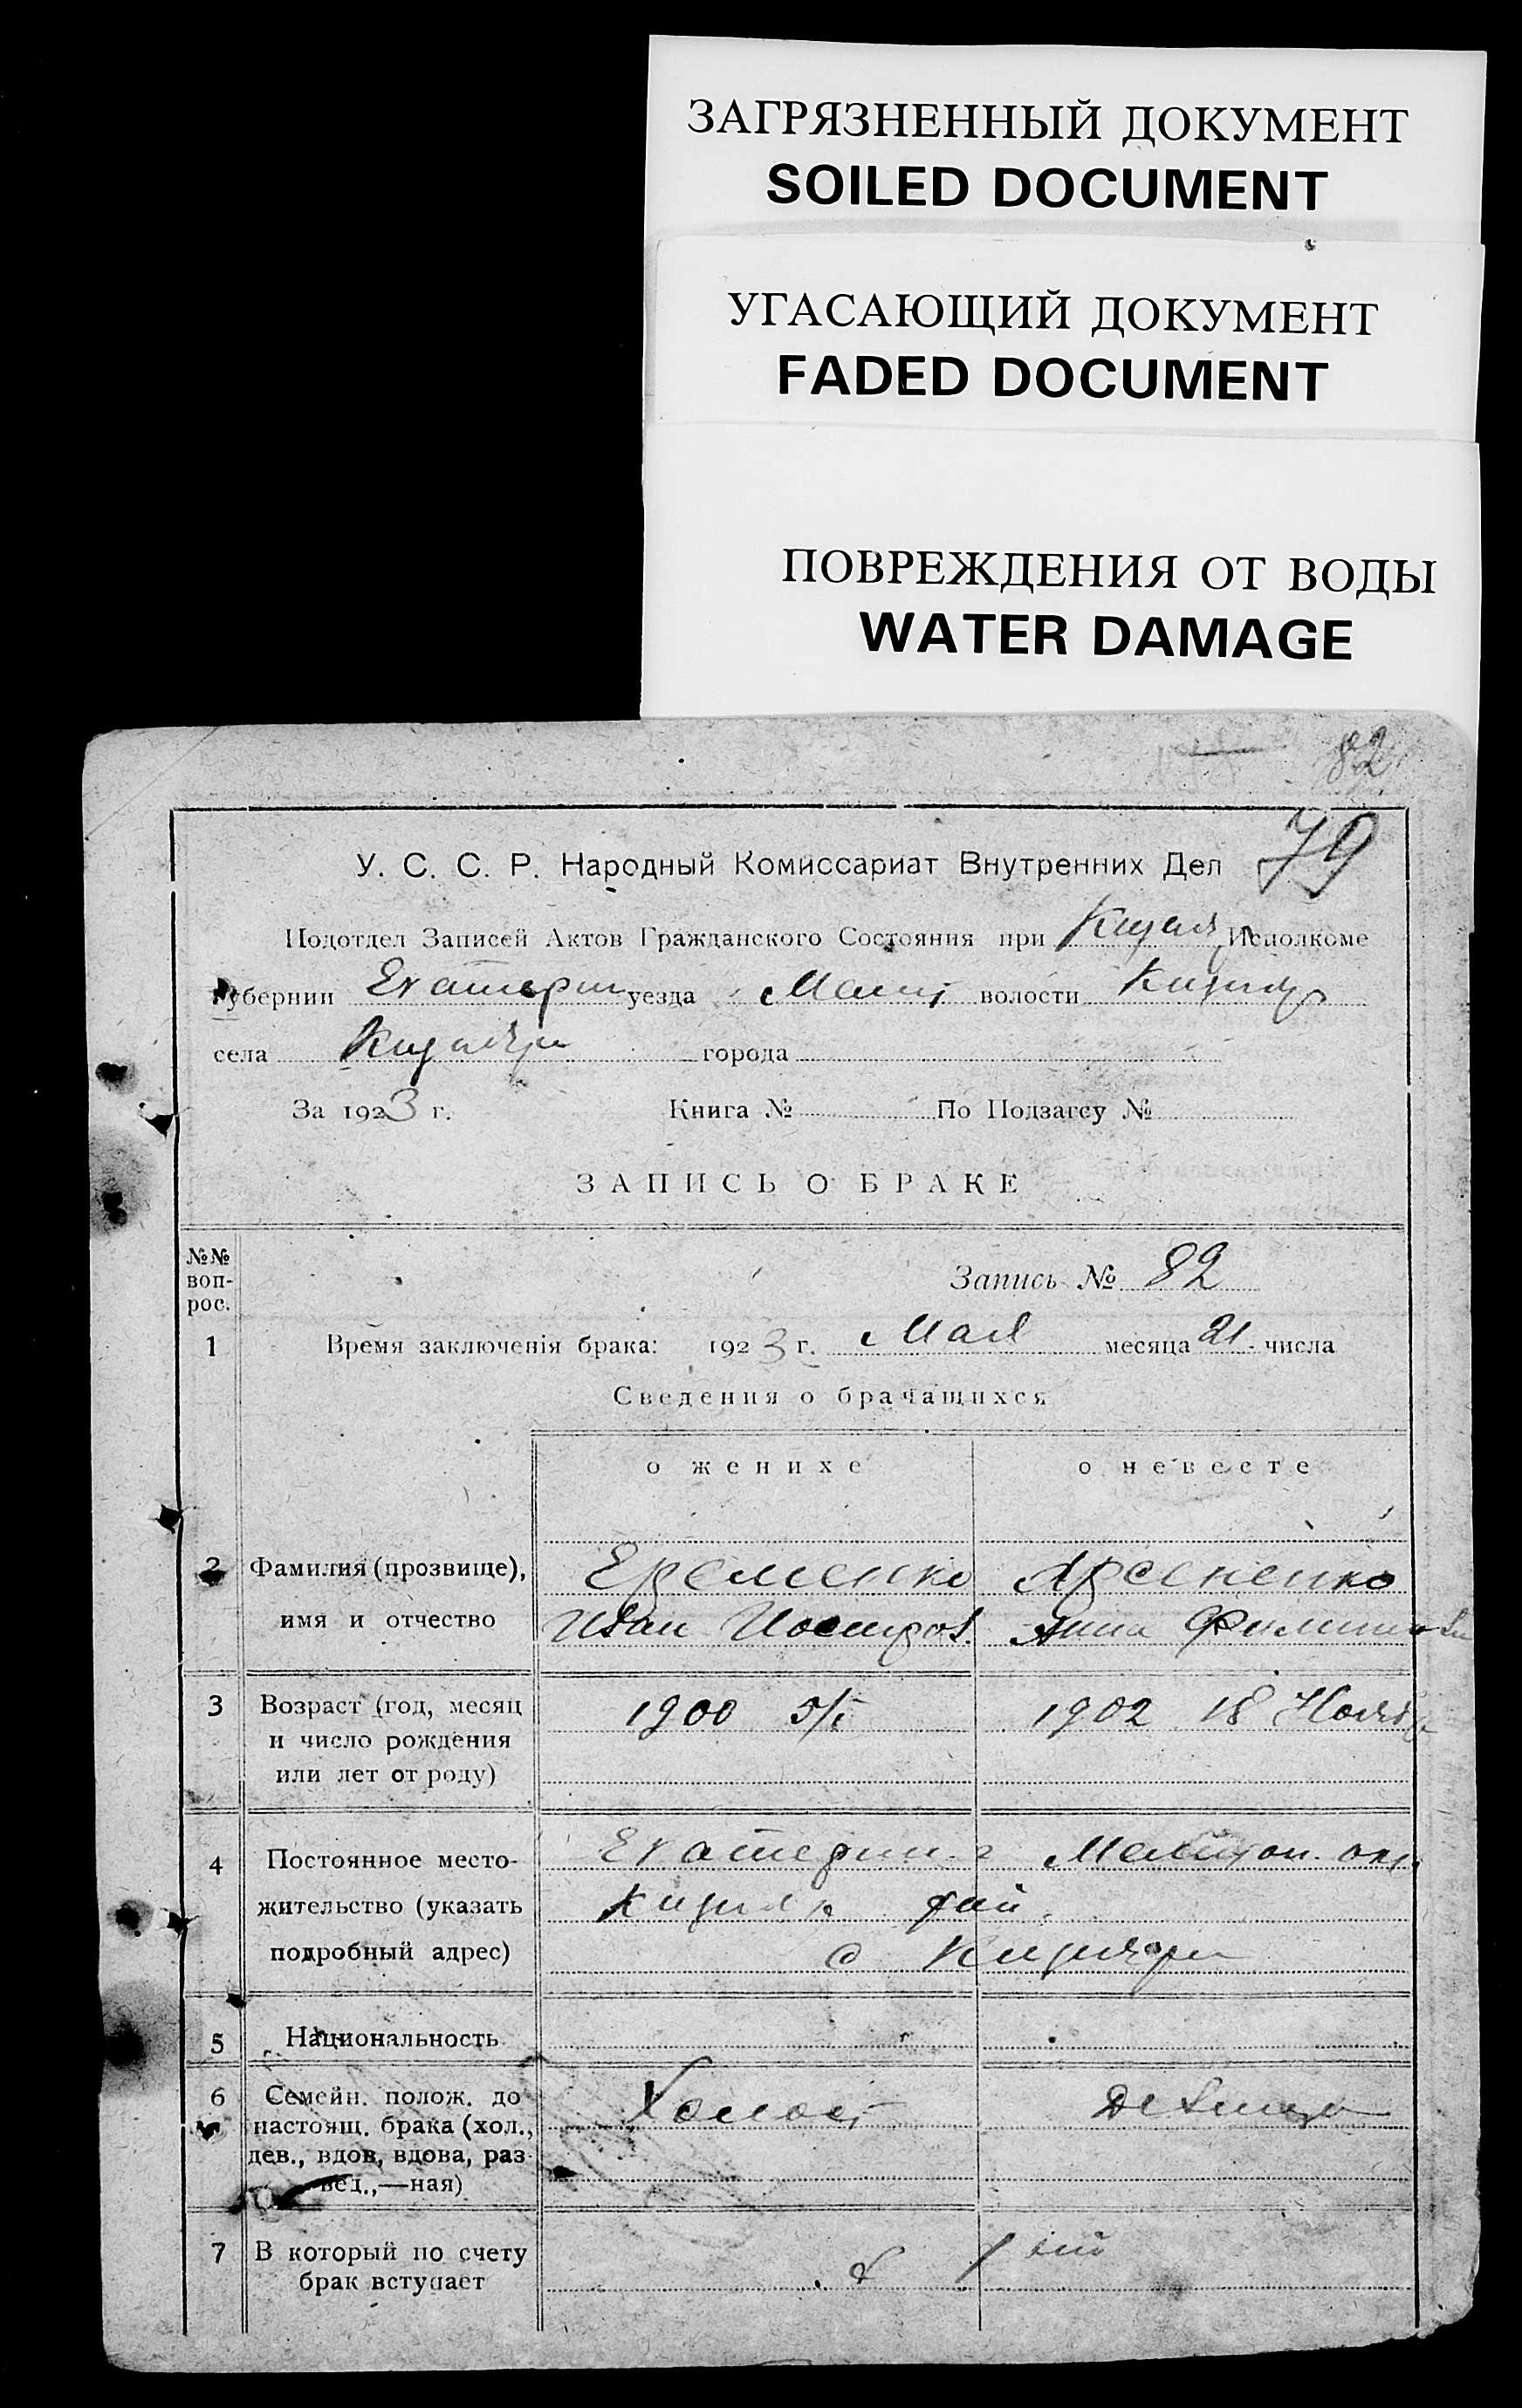 ЗАГРЯЗНЕННЫЙ ДОКУМЕНТ
SOILED DOCUMENT
УГАСАЮЩИЙ ДОКУМЕНТ
FADED DOCUMENT
ПОВРЕЖДЕНИЯ ОТ ВОДЫ
WATER DAMAGE
82
79
У. С. С. Р. Народный Комиссариат Внутренних Дел
Подотдел Записей Актов Гражданского Состояния при Исполкоме
Губернии Екатерин уезда волости
села города
За 1923 г. Книга № По Подзагсу №
ЗАПИСЬ О БРАКЕ
№№
воп-
рос.
Запись № 82
1 Время заключенія брака: 1923 г. Мая месяца 21 числа
Сведения о брачащихся
о женихе о невесте
2 Фамилия (прозвище), Еременко Арсененко
имя и отчество Иван Анна
3 Возраст (год, месяц 1900 5/I 1902 18
и число рождения
или лет от роду)
4 Постоянное место- Екатерин. г
жительство (указать рай.
подробный адрес) с
5 Национальность
6 Семейн. полож. до Холост Девица
настоящ. брака (хол.,
дев., вдов, вдова, раз-
вед.,—ная)
7 В который по счету в 1 ый
брак вступает